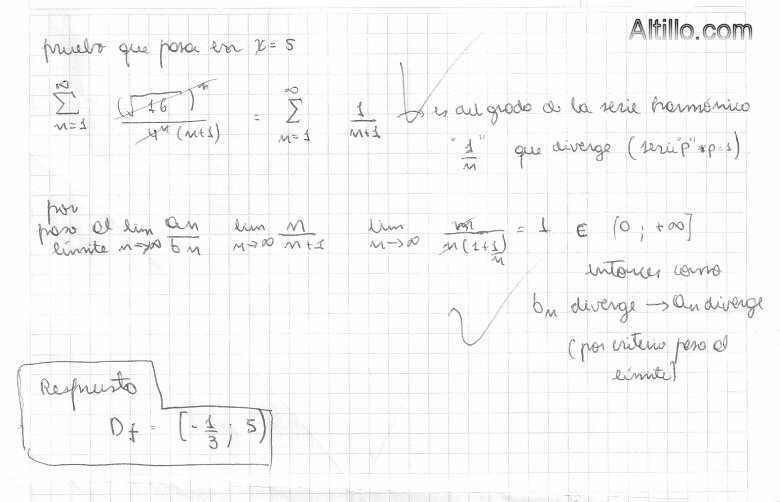 Altillo.com
pruebo que pasa en x = 5
∑_{n=1}^{∞} (√16)^n / 4^n (n+1) = ∑_{n=1}^{∞} 1/(n+1) → es del grado de la serie harmónica
"1/n" que diverge (serie "p" p=1)
por
paso al límite lim_{n→∞} an/bn lim_{n→∞} n/(n+1) lim_{n→∞} n/(n(1+1/n)) = 1 ∈ (0 ; +∞]
entonces como
bn diverge → an diverge
(por criterio paso al
límite)
Respuesta
Df = [-1/3 ; 5)